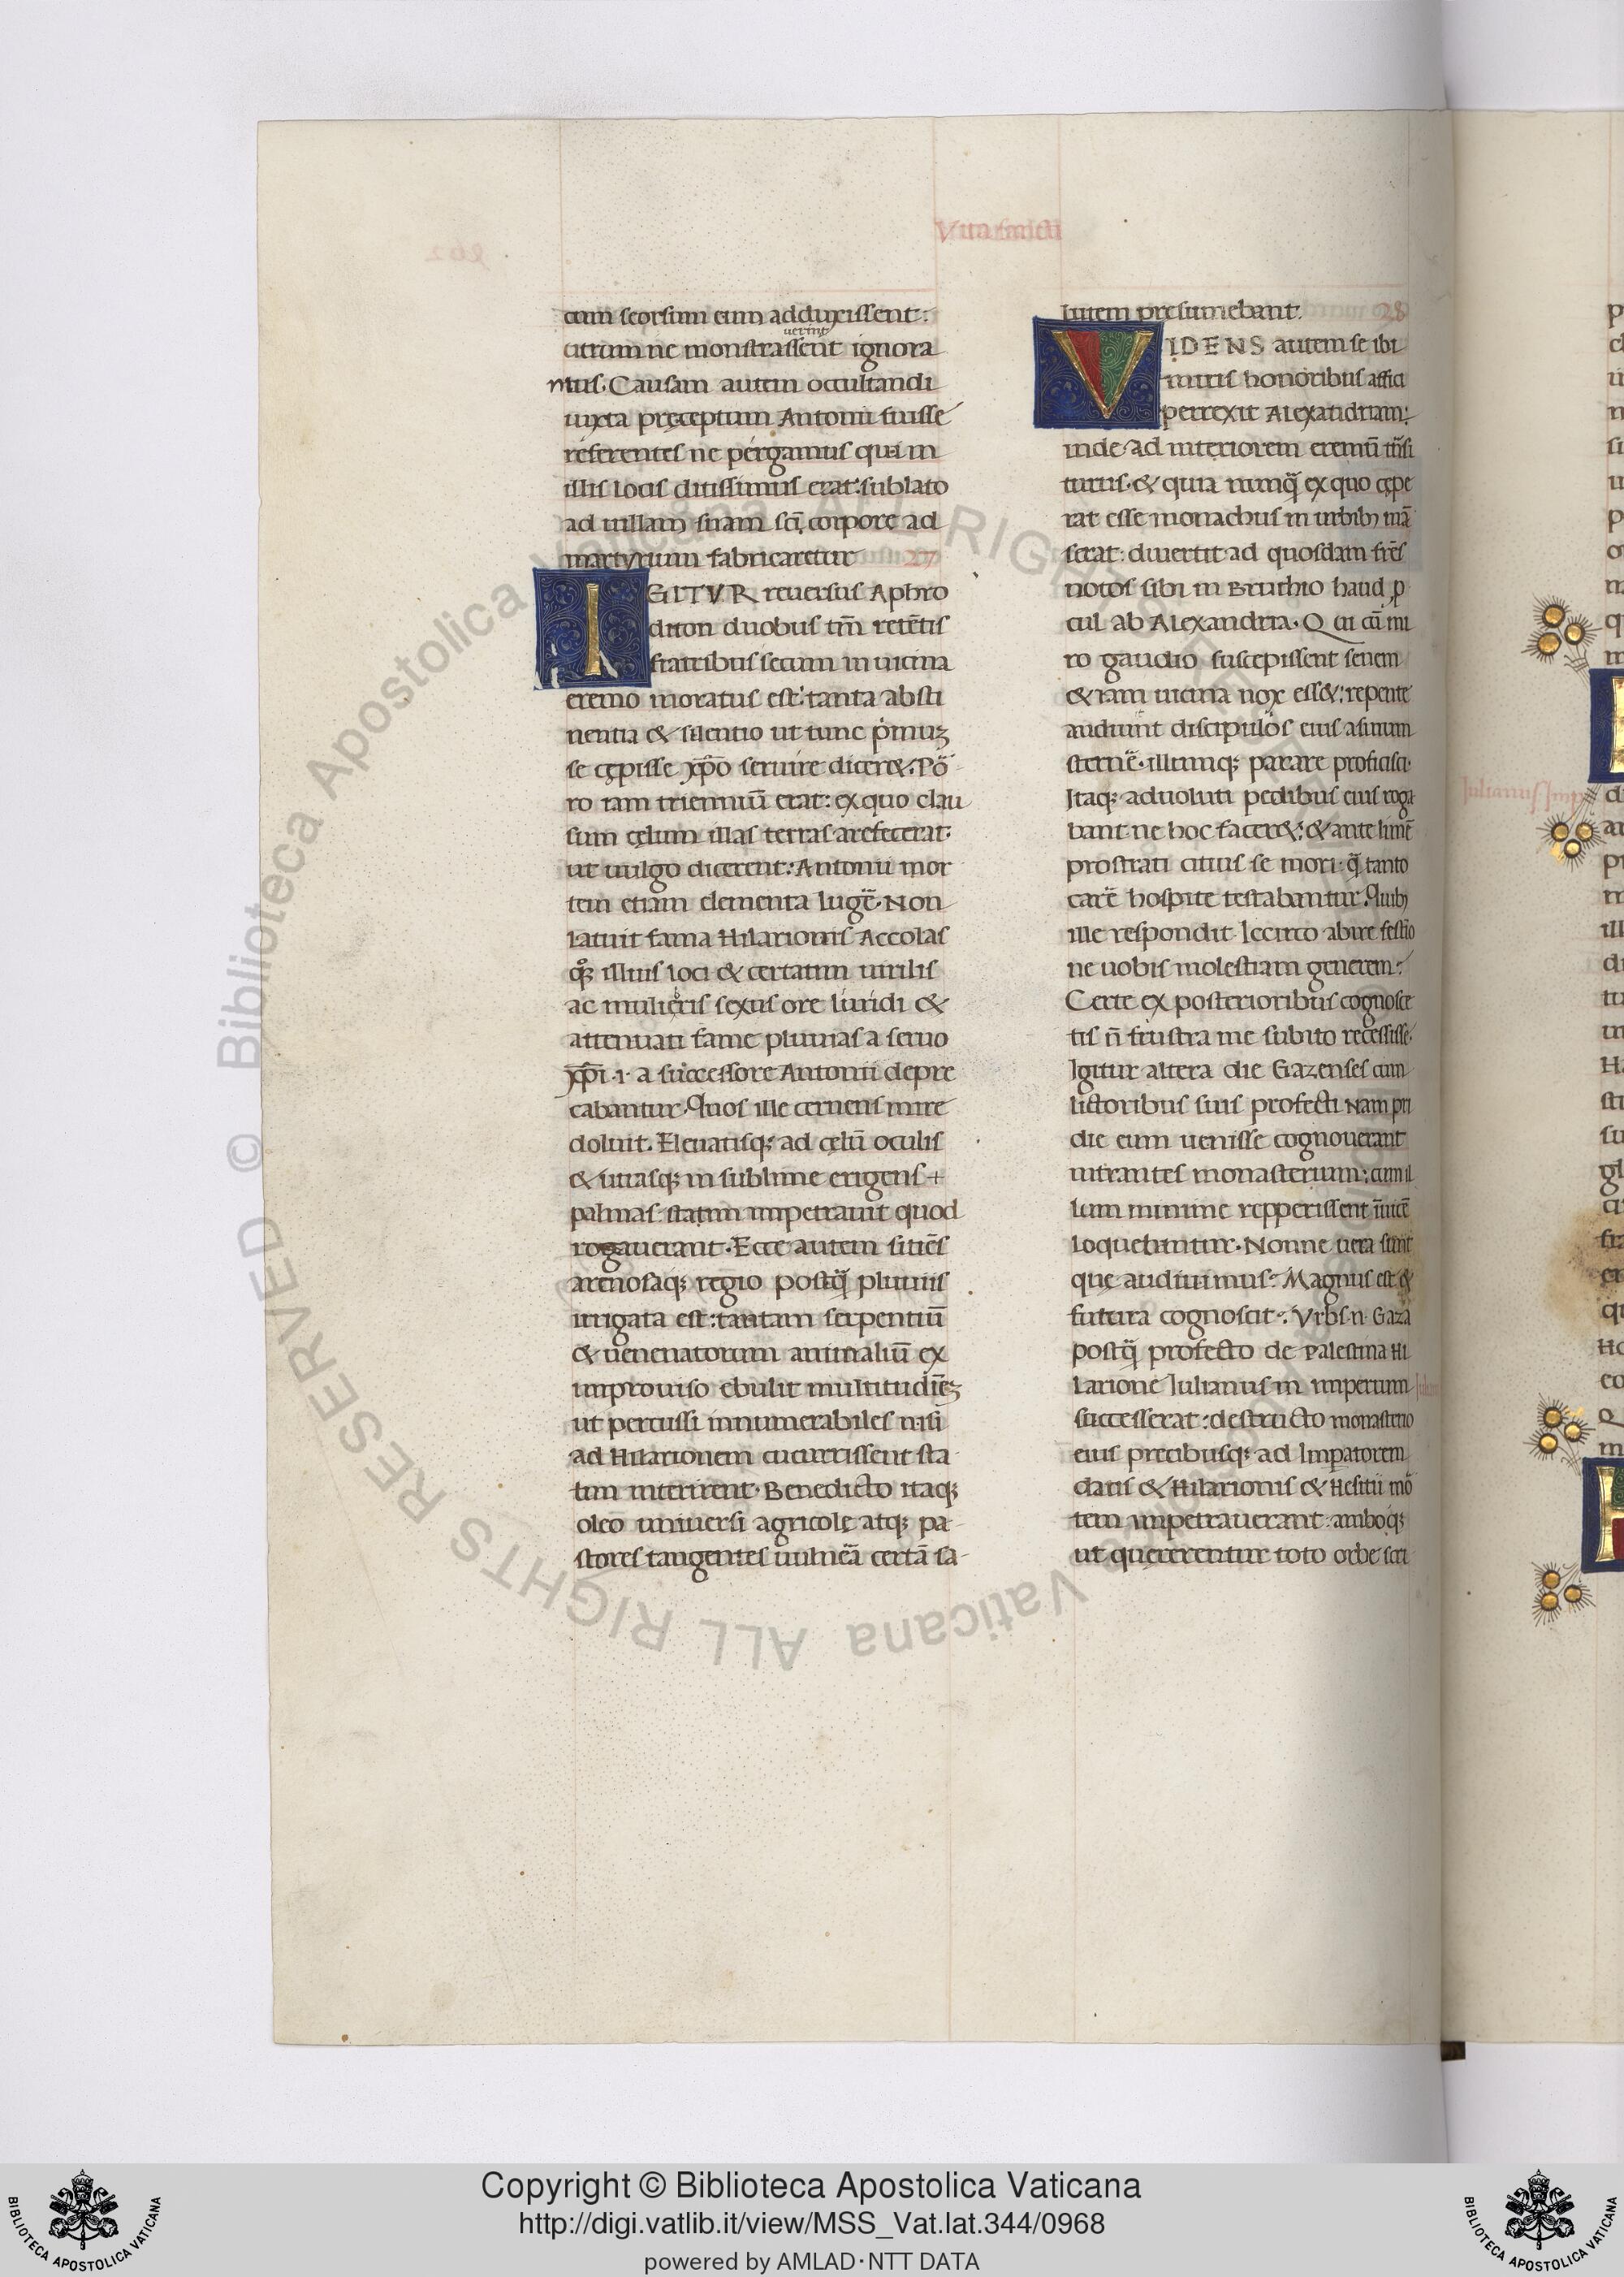 Vita sancti
cum seorsum eum adduxissent:
uerint
utrum ne monstrassent ignora
mus. Causam autem occultandi
iuxta preceptum Antonii fuisse
referentes ne pergamius qui in
illis locis ditissimus erat: sublato
ad uillam suam sc̅i corpore ad
martyrium fabricaretur 27
IGITVR reuersus Aphro
diton duobus tm̅ rete̅tis
fratribus secum in uicina
eremo moratus est: tanta absti
nentia & silentio ut tunc pimuʒ
se cepisse xp̅o seruire dicer&. Po
ro iam trienniu̅ erat: ex quo clau
sum celum illas terras arefecerat:
ut uulgo dicerent: Antonii mor
tem etiam elementa luge̅. Non
latuit fama Hilarionis Accolas
qoqʒ illius loci & certatim uirilis
ac mulieris sexus ore liuridi &
attenuati fame pluuias a seruo
xp̅i .i. a successore Antonii depre
cabantur. Quos ille cernens mire
doluit. Eleuatisqʒ ad celu̅ oculis
& utrasqʒ in sublime erigens +
palmas: statim impetrauit quod
rogauerant. Ecce autem sitie̅s
arenosaqʒ regio postq̅ pluuiis
irrigata est: tantam serpentiu̅
& uenenatorum animaliu̅ ex
improuiso ebuliit multitudi̅eʒ
ut percussi innumerabiles nisi
ad Hilarionem cucurrissent sta
tim interirent. Benedicto itaqʒ
oleo uniuersi agricole atqʒ pa
stores tangentes uulnea̅ certa̅ sa
lutem presumebant. 28
VIDENS autem se ibi
miris honoribus affici
perrexit Alexandriam:
inde ad interiorem eremu̅ tn̅si
turus. & quia nunq̅ ex quo cepe
rat esse monachus in urbibʒ ma̅
serat: diuertit ad quosdam fre̅s
notos sibi in Bruchio haud p
cul ab Alexandria. Qui cu̅ mi
ro gaudio suscepissent senem
& iam uicina nox ess&: repente
audiunt discipulos eius asinum
sterne̅. illumqʒ parare proficisci.
Itaqʒ aduoluti pedibus eius roga
bant ne hoc facer&: & ante lime̅
prostrati citius se mori. q̅ tanto
care̅ hospite testabantur. Quibʒ
ille respondit. Iccirco abire festio
ne uobis molestiam generem:
Certe ex posterioribus cognosce
tis n̅ frustra me subito recessisse.
Igitur altera die Gazenses cum
lictoribus suis profecti Nam pri
die eum uenisse cognouerant
intrantes monasterium: cum il
lum minime repperissent i̅uice̅
loquebantur. Nonne uera sunt
que audiuimus: Magus est &
futura cognoscit. Vrbs .n. Gaza
postq̅ profecto de Palestina Hi
larione Iulianus in imperium
successerat: destructo monasterio
eius precibusqʒ ad Imperatorem
datis & Hilarionis & Hesitii mo
tem impetrauerant. amboqʒ
ut quererentur toto orbe scri
Iulianus Imp
Copyright © Biblioteca Apostolica Vaticana
http://digi.vatlib.it/view/MSS_Vat.lat.344/0968
powered by AMLAD·NTT DATA
BIBLIOTECA APOSTOLICA VATICANA
BIBLIOTECA APOSTOLICA VATICANA
© Biblioteca Apostolica Vaticana ALL RIGHTS RESERVED